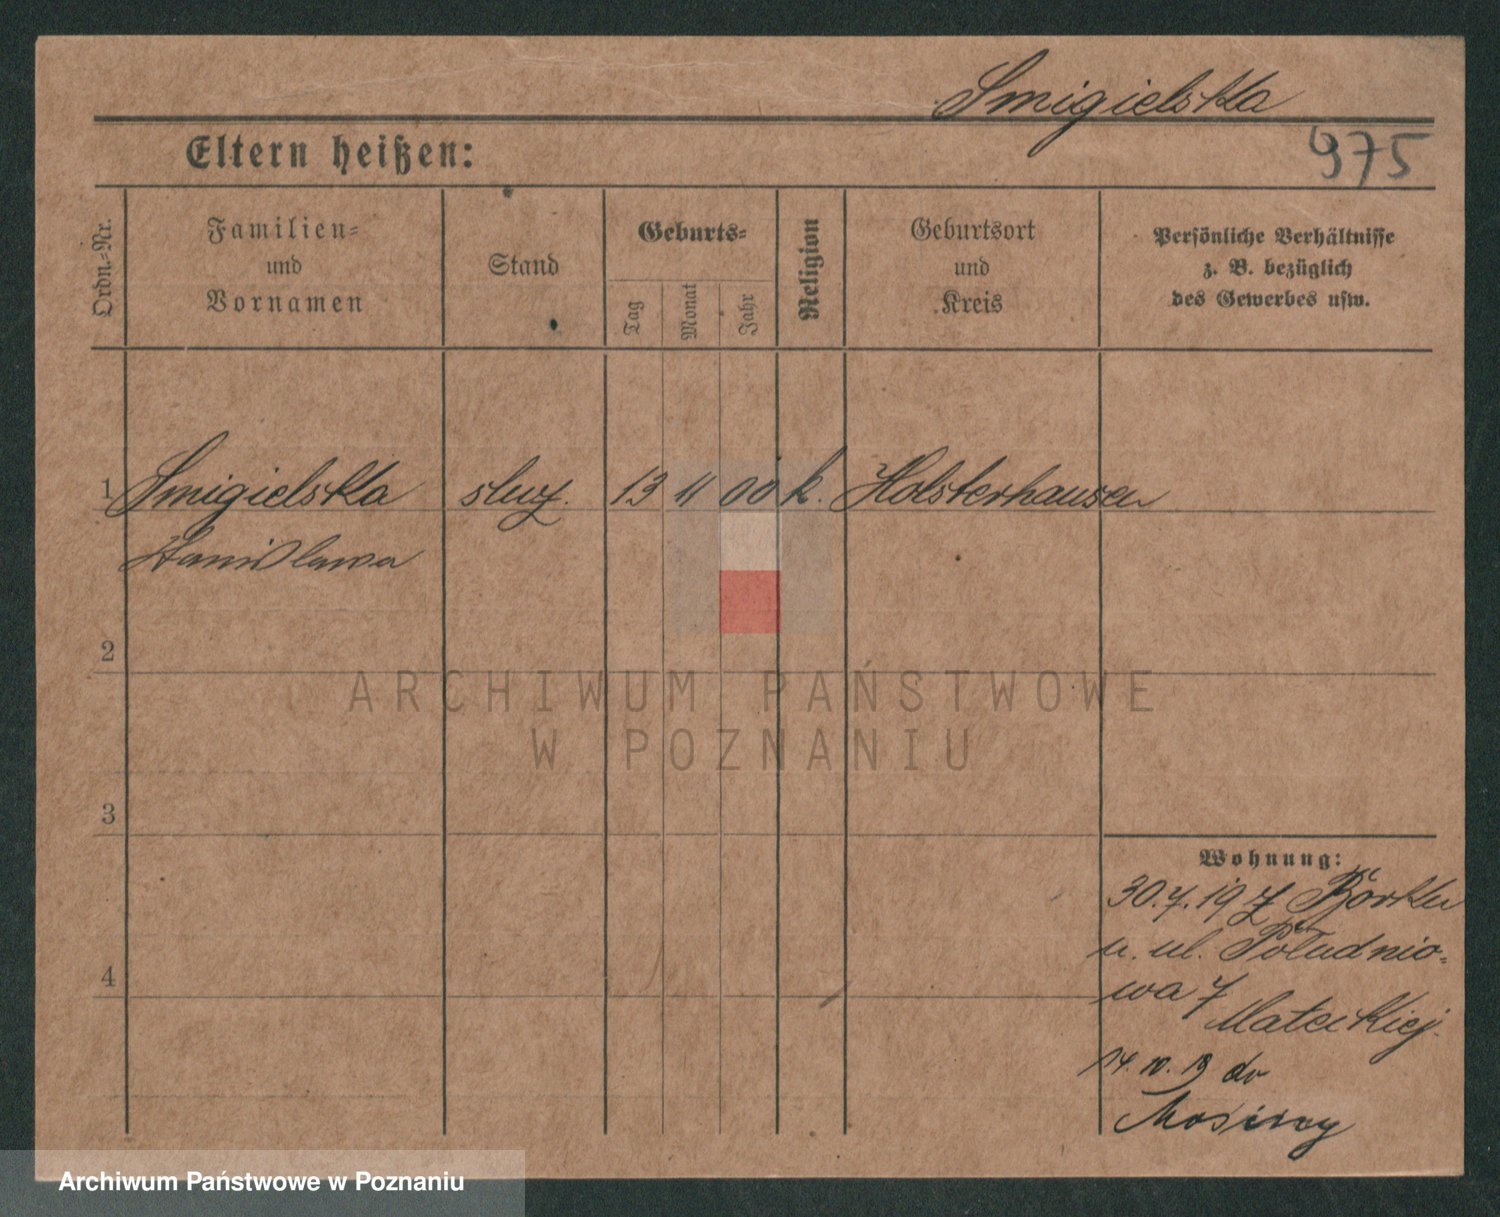 Smigielska
Eltern heißen:
975
Ordn.-Nr.
Familien- und Vornamen
Stand
Geburts-
Tag
Monat
Jahr
Religion
Geburtsort und Kreis
Persönliche Verhältnisse z. B. bezüglich des Gewerbes usw.
1 Smigielska służ. 13 11 00 k. Holsterhausen
Stanisława
2
ARCHIWUM PAŃSTWOWE
W POZNANIU
3
Wohnung:
30.7.19 z Borku
u. ul. Południo-
4
wa 7
Mateckiej.
14.10.19 do
Mosiny
Archiwum Państwowe w Poznaniu